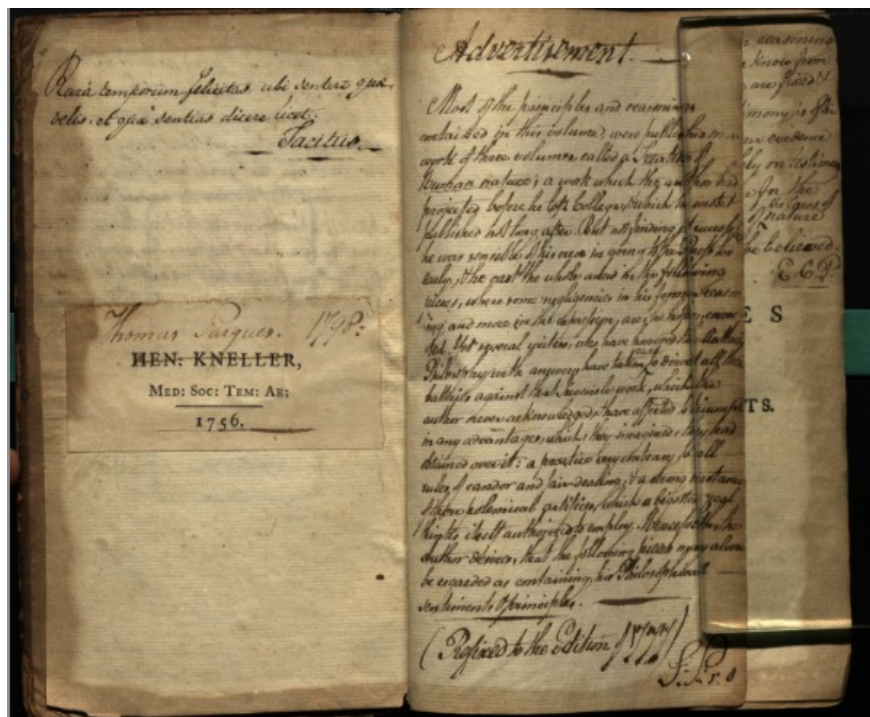 Rara temporum felicitas ubi sentire quæ
velis, et quæ sentias dicere licet.
Tacitus.
Thomas 1798:
HEN: KNELLER,
MED: SOC: TEM: AR:
1756.
Advertisement.
Most of the principles and reasonings
contained in this volume, were published in a
work of three volumes called a Treatise of
Human nature; a work which the author had
projected before he left College, & which he wrote &
published not long after. But not finding it successful,
he was sensible of his error in going to the Press too
early, & he cast the whole anew in the following
pieces, where some negligencies in his former reason-
ing and more in the expression, are, he hopes, correc-
ted. Yet several writers, who have honored the Author's
Philosophy with answers, have taken care to direct all their
batteries against that Juvenile work, which the
author never acknowledged, & have affected to triumph
in any advantages, which, they imagined, they had
obtained over it: a practice very contrary to all
rules of candor and fair-dealing, & a strong instance
of those polemical artifices, which a bigotted zeal
thinks itself authorized to employ. Henceforth, the
Author desires, that the following pieces may alone
be regarded as containing his Philosophical
sentiments & principles.
(Prefixed to the Edition of
reasoning
know from
are fixed &
evidence
on testimony
In the
of nature
be believed.
E.C.P.
E S
TS.